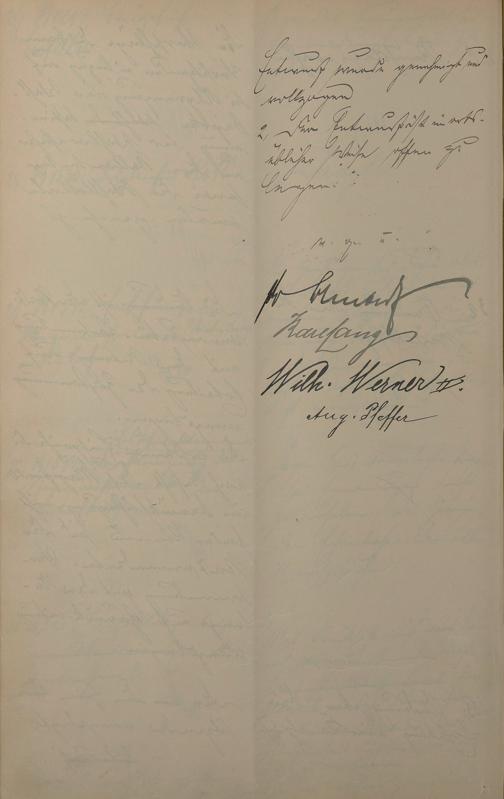 Entwurf wurde genehmigt und
vollzogen
2, Der Entwurf ist in orts-
üblicher Weise offen zu
legen.
v. g. u.
Karl Lang
Wilh. Werner IV.
Aug. Pfeffer